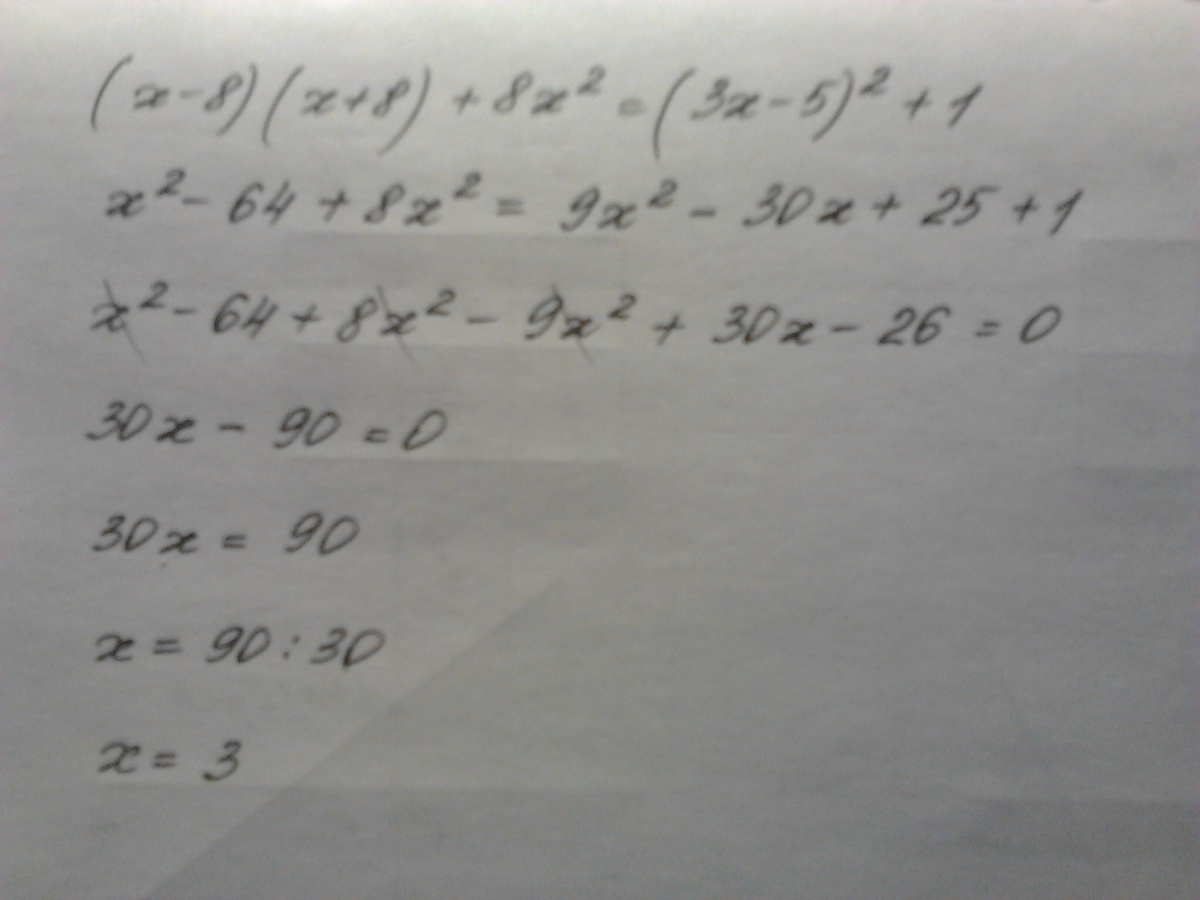 (x-8)(x+8) + 8x² = (3x-5)² + 1
x² - 64 + 8x² = 9x² - 30x + 25 + 1
x² - 64 + 8x² - 9x² + 30x - 26 = 0
30x - 90 = 0
30x = 90
x = 90 : 30
x = 3